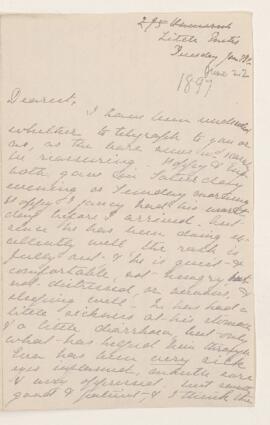 Tuesday
June 22
1897
Dearest,
I have been undecided
whether to telegraph to you or
no, as the bare news
be reassuring.
both gave in Saturday
evening or Sunday morning
day before I arrived. but
since he has been doing ex-
cellently well, the rash is
fully out - & he is quiet &
comfortable, not hungry but
not distressed or anxious, &
sleeping well - he has had a
little sickness at his stomach
& a little diarrhoea, but only
what has helped him through
has been very sick
eyes inflamed, mouth sore
& very oppressed, but
good & patient, & I think the